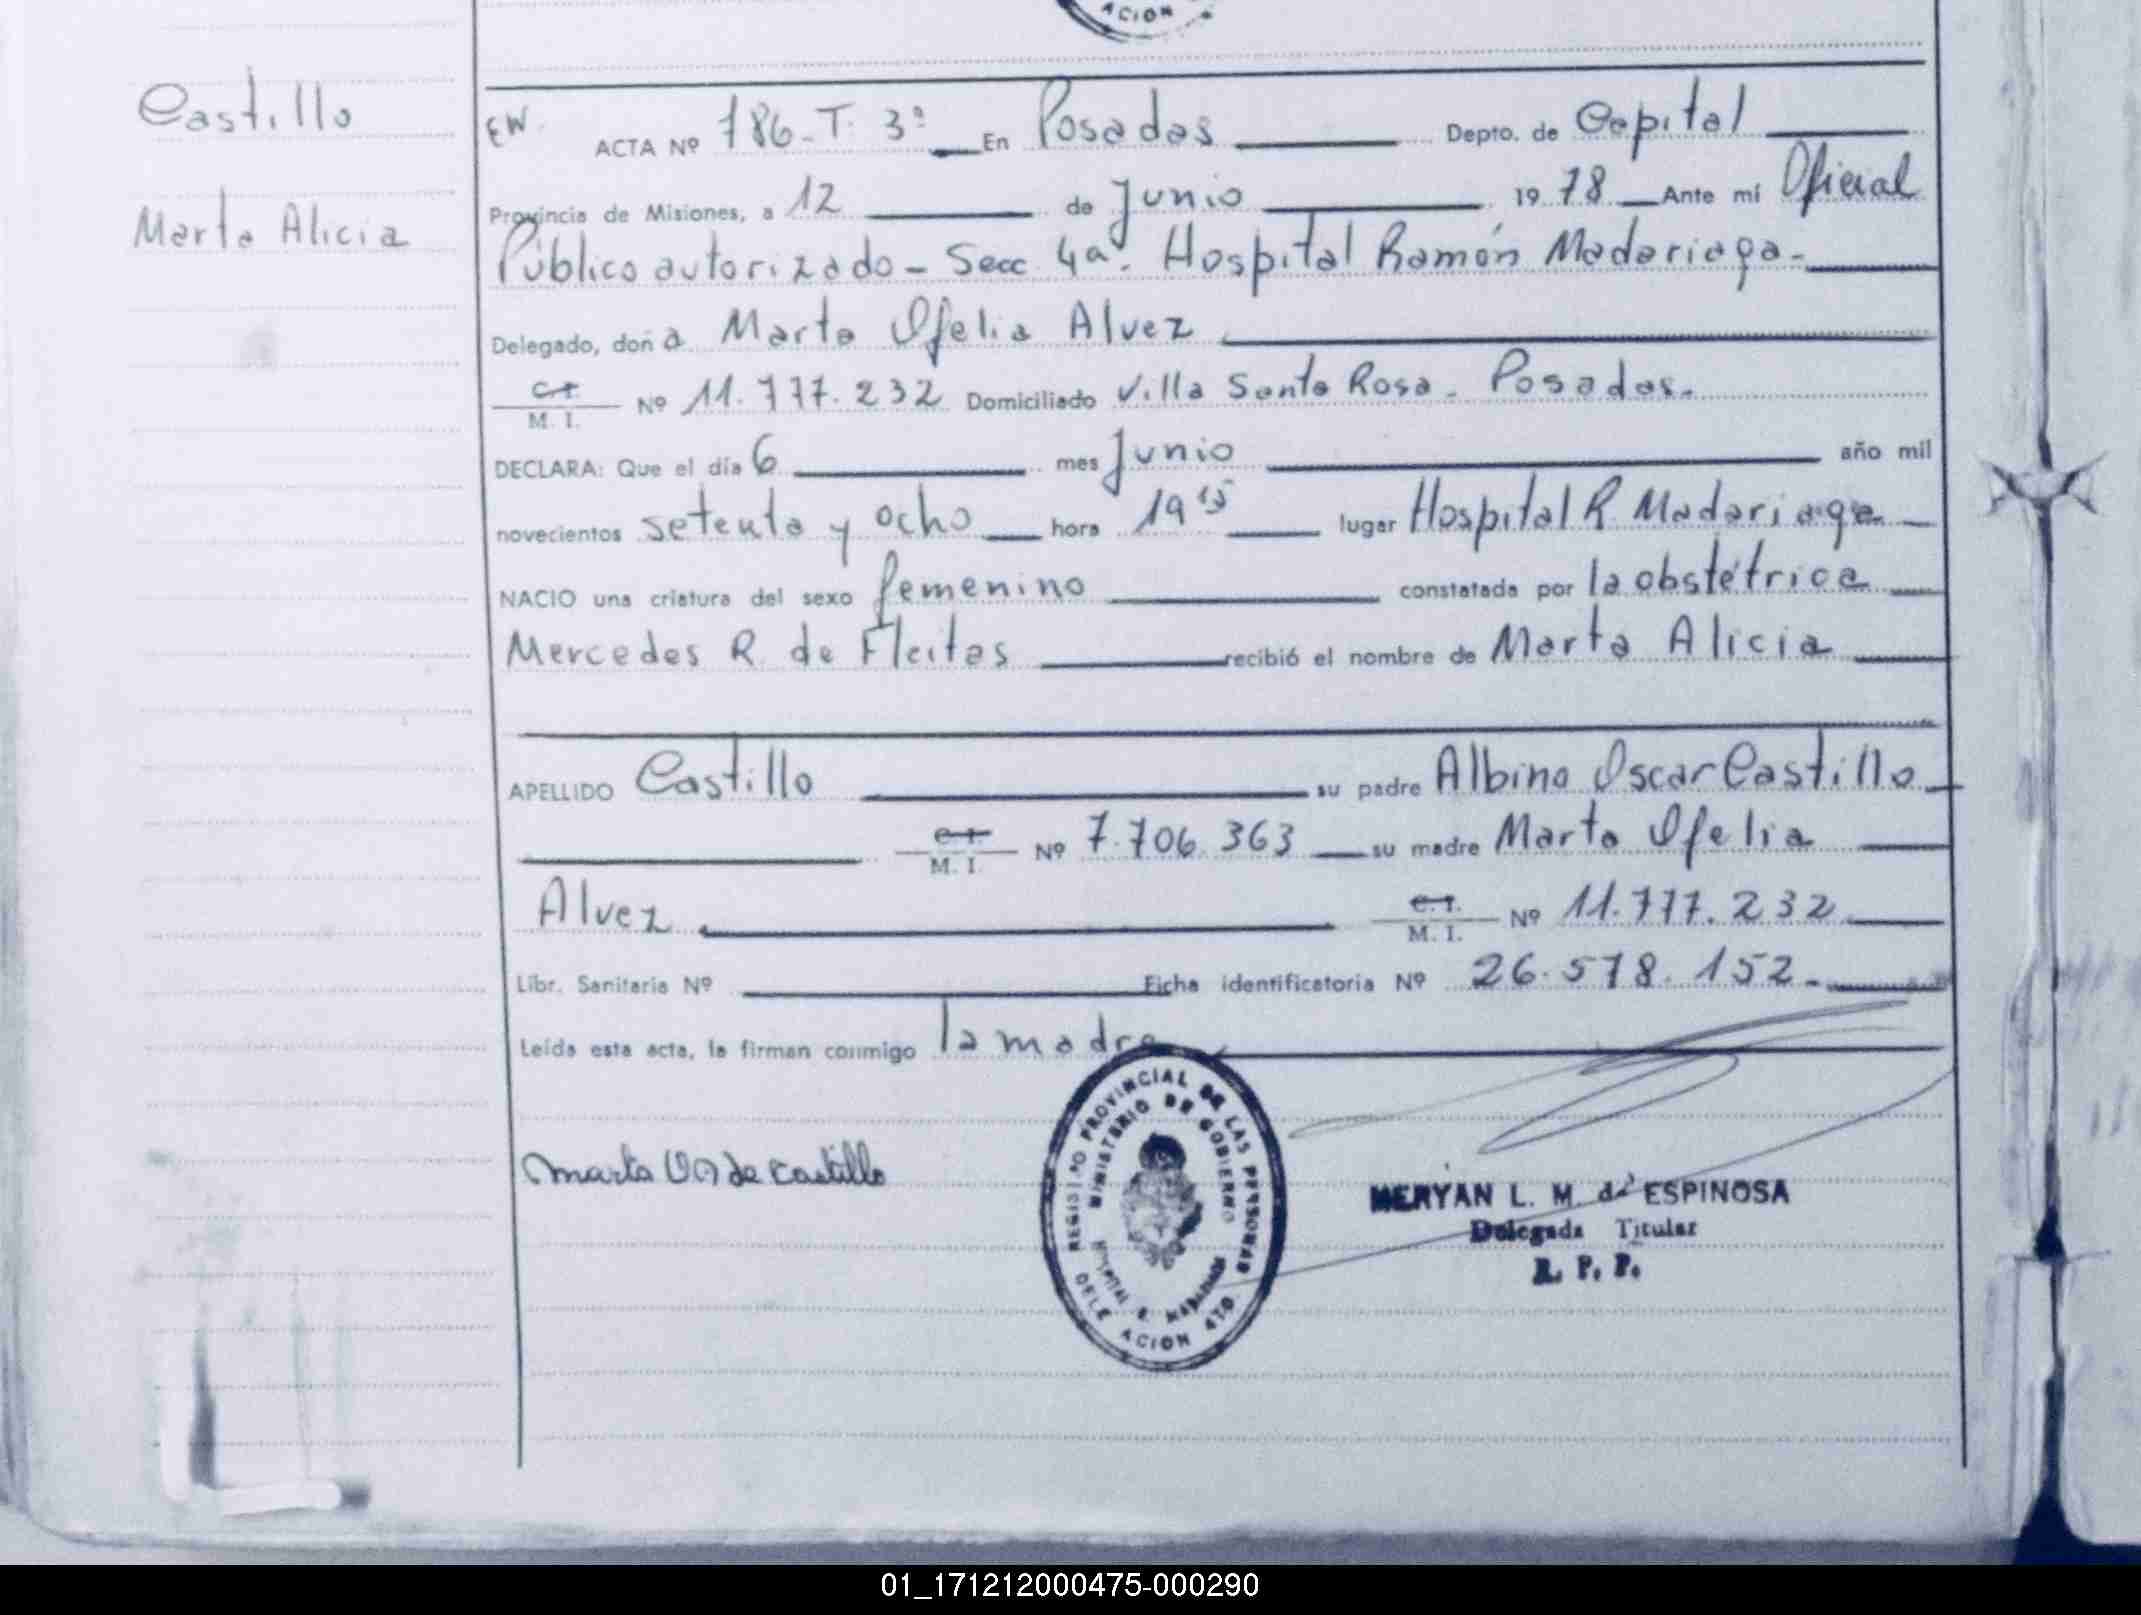 ACION
Castillo
Marta Alicia
EW. ACTA Nº 786-T. 3º En Posadas Depto. de Capital
Provincia de Misiones, a 12 de Junio 1978 Ante mí Oficial
Público autorizado - Secc 4ª. Hospital Ramón Madariaga.
Delegado, doña Marta Ofelia Alvez
C.I.
M. I. Nº 11.777.232 Domiciliado Villa Santa Rosa. Posadas.
DECLARA: Que el día 6 mes Junio año mil
novecientos setenta y ocho hora 19 15 lugar Hospital R Madariaga
NACIO una criatura del sexo femenino constatada por la obstétrica
Mercedes R. de Fleitas recibió el nombre de Marta Alicia
APELLIDO Castillo su padre Albino Oscar Castillo
C.I.
M. I. Nº 7.706.363 su madre Marta Ofelia
Alvez C.I.
M. I. Nº 11.777.232
Libr. Sanitaria Nº Ficha identificatoria Nº 26.578.152.
Leída esta acta, la firman conmigo la madre
REGISTRO PROVINCIAL DE LAS PERSONAS
MINISTERIO DE GOBIERNO
HOSPITAL R. MADARIAGA
DELEGACION 4TO
Marta de Castillo
MERYAN L. M. de ESPINOSA
Delegada Titular
R. P. P.
01_171212000475-000290